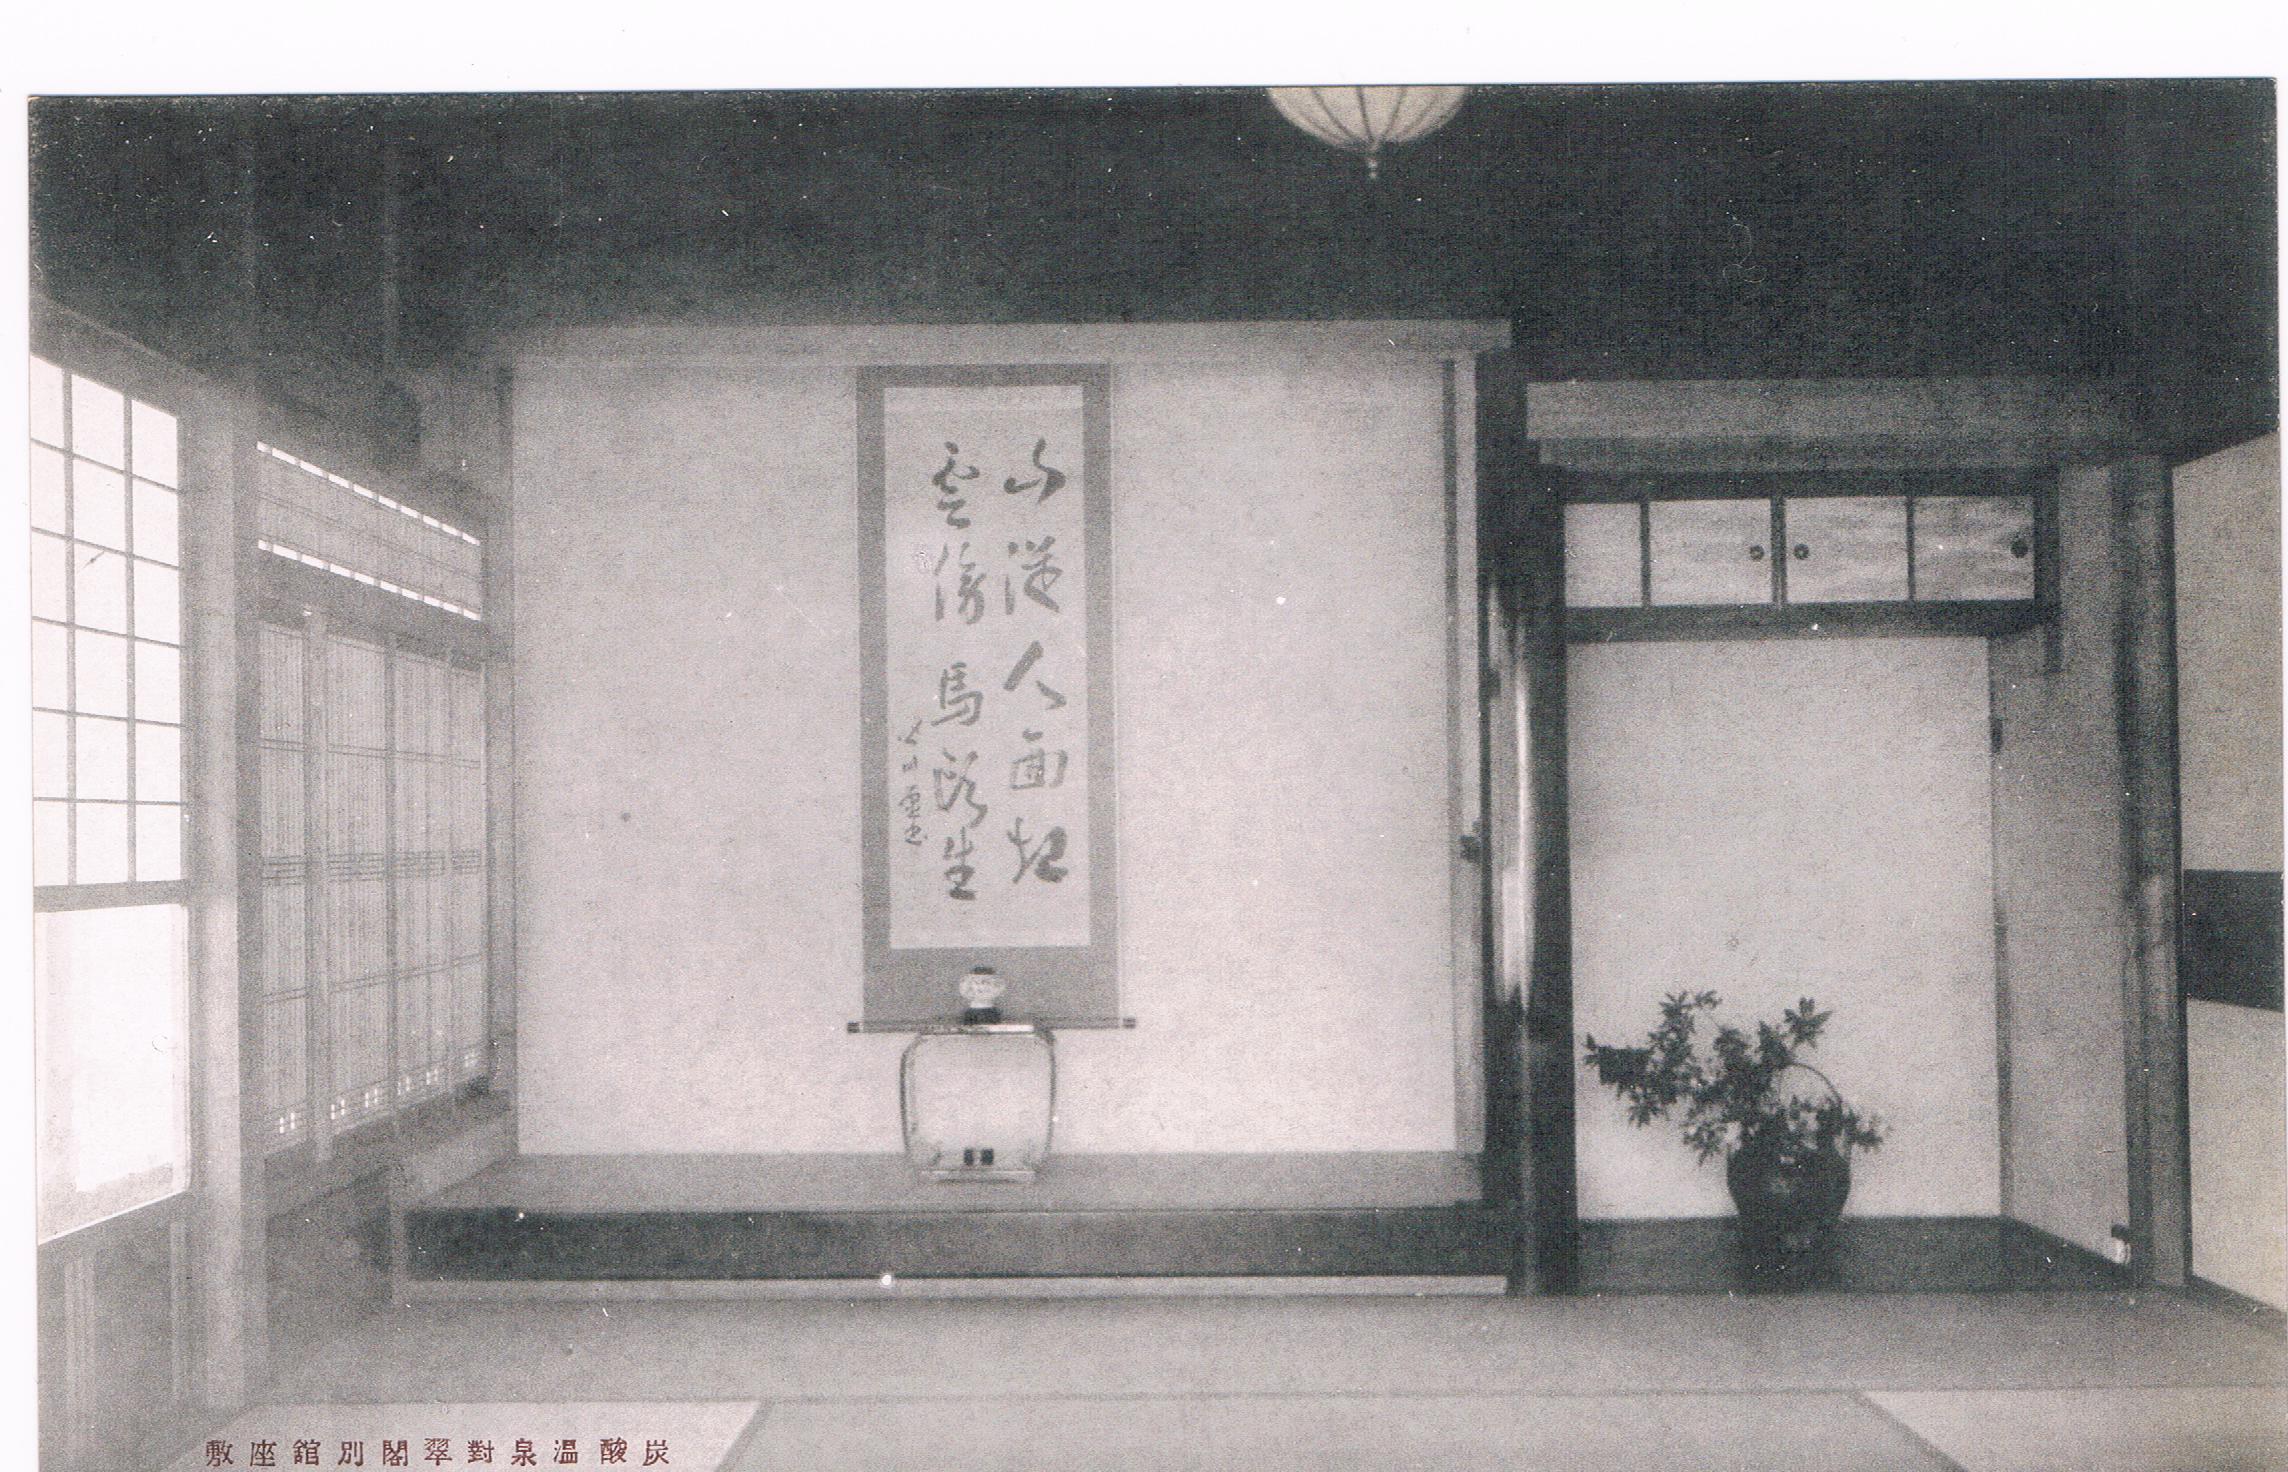 山従人面起
雲傍馬頭生
炭酸温泉對翠閣別館座敷